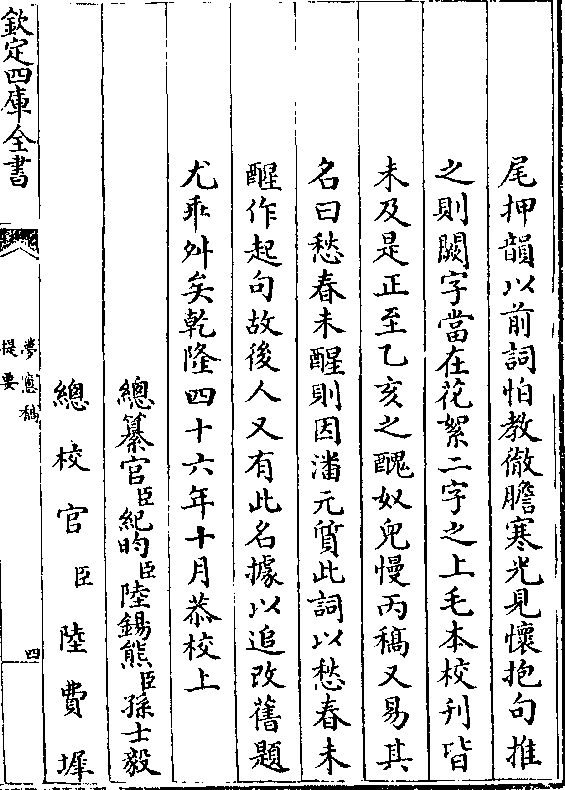 尾押韻以前詞怕教徹膽寒光見懷抱句推
之則闕字當在花絮二字之上毛本校刊皆
未及是正至乙亥之醜奴兒慢丙稿又易其
名曰愁春未醒則因潘元質此詞以愁春未
醒作起句故後人又有此名據以追改舊題
尤乖舛矣乾隆四十六年十月恭校上
總纂官臣紀昀臣陸錫熊臣孫士毅
總校官臣陸費墀
欽定四庫全書
夢窗稿
提要
四